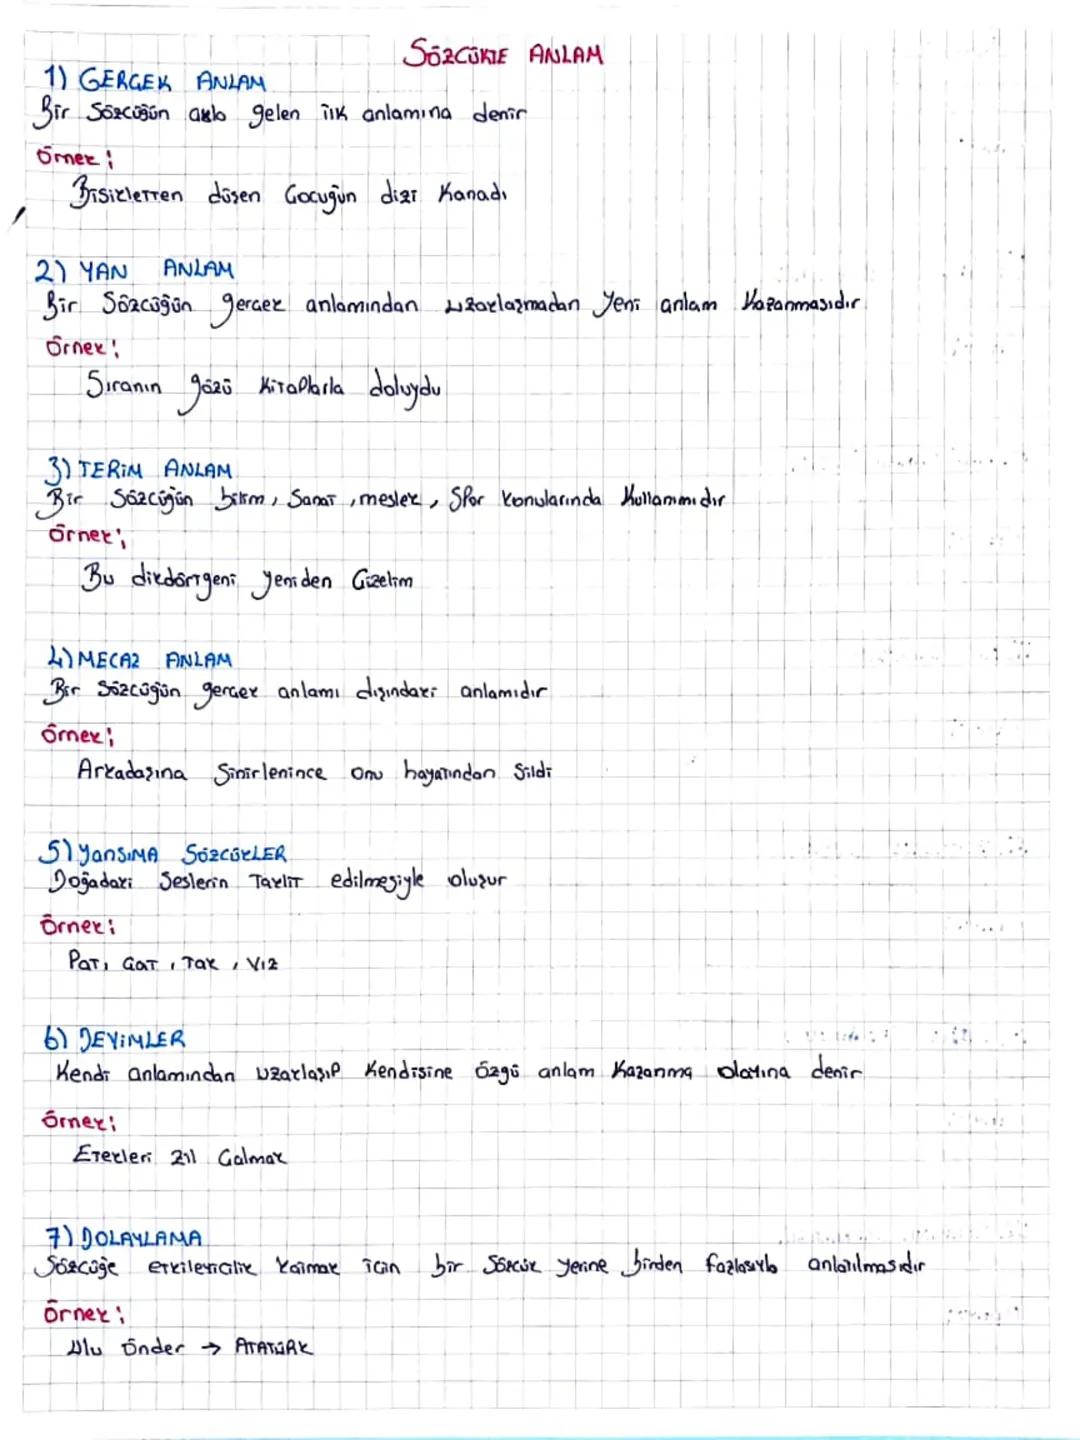 SÖZCÜKTE ANLAM
1) GERÇEK ANLAM
Bir Sözcüğün akla gelen ilk anlamına denir
Örnek;
Bisikletten düşen Çocuğun dizi Kanadı
2) YAN ANLAM
Bir Sözcüğün gerçek anlamından uzaklaşmadan Yeni anlam Kazanmasıdır
Örnek;
Sıranın gözü Kitaplarla doluydu
3) TERİM ANLAM
Bir Sözcüğün bilim, Sanat, meslek, Spor konularında Kullanımıdır
Örnek;
Bu dikdörtgeni yeniden Çizelim
4) MECAZ ANLAM
Bir Sözcüğün gerçek anlamı dışındaki anlamıdır
Örnek;
Arkadaşına Sinirlenince onu hayatından Sildi
5) YANSIMA SÖZCÜKLER
Doğadaki Seslerin Taklit edilmesiyle oluşur
Örnek;
Pat, Çat, Tak, Vız
6) DEYİMLER
Kendi anlamından uzaklaşıp Kendisine özgü anlam Kazanma olayına denir
Örnek;
Etekleri zil Çalmak
7) DOLAYLAMA
Sözcüğe etkileyicilik Katmak için bir Sözcük yerine birden fazlasıyla anlatılmasıdır
Örnek;
Ulu Önder → ATATÜRK